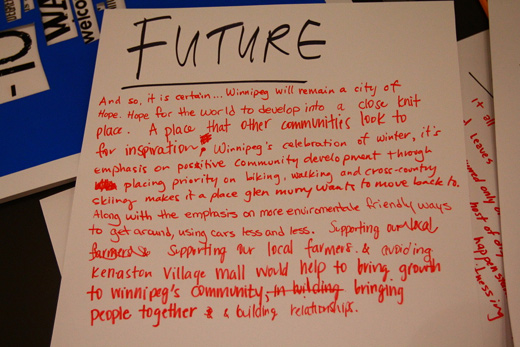 FUTURE
And so, it is certain... Winnipeg will remain a city of
Hope. Hope for the world to develop into a close knit
place. A place that other communities look to
for inspiration. Winnipeg's celebration of winter, it's
emphasis on positive community development though
placing priority on biking, walking and cross-country
skiing makes it a place glen murry wants to move back to.
Along with the emphasis on more environmentale friendly ways
to get around, using cars less and less. Supporting our local
farmers Supporting our local farmers & avoiding
Kenaston Village mall would help to bring growth
to winnipeg's community, in building bringing
people together & & building relationships.
-10
WA
welco
it all
leaves
only
most of
happen